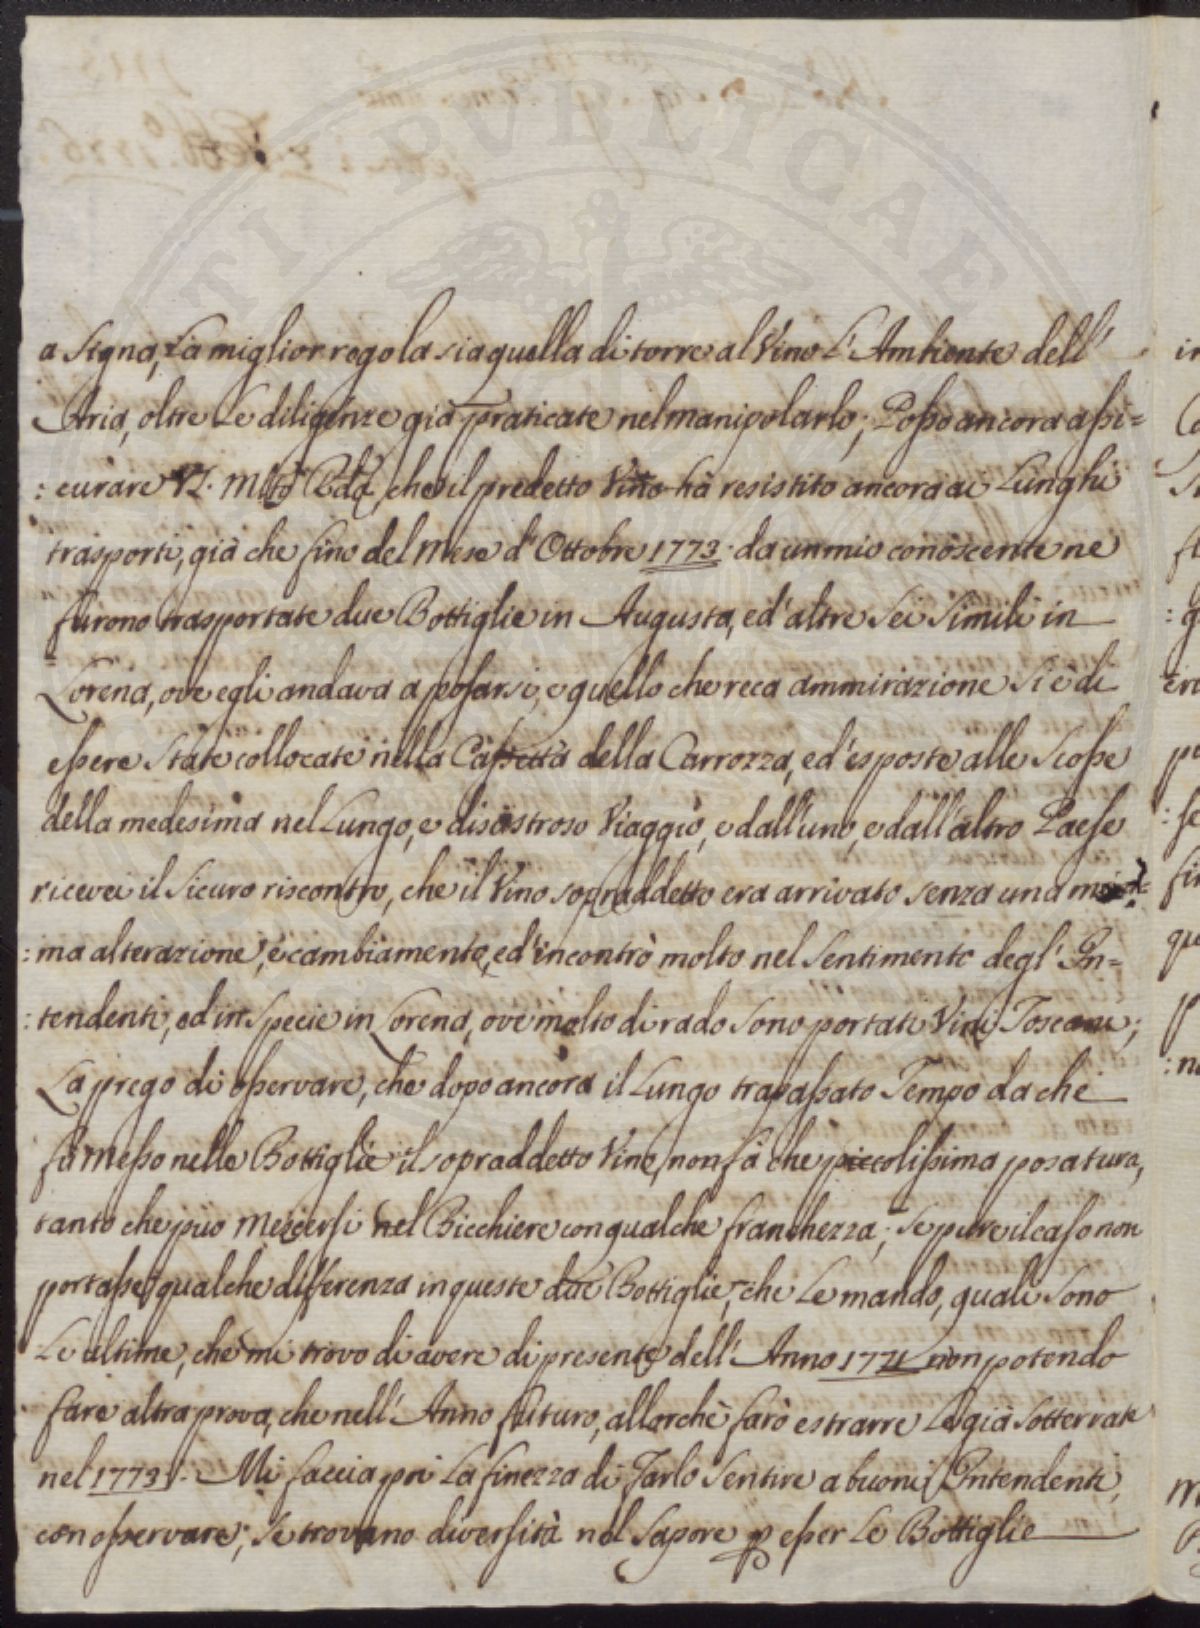 a Signa, La miglior regola sia quella di torre al Vino L'Ambiente dell'
Aria, oltre Le diligenze già praticate nel manipolarlo; Posso ancora assi=
:curare VS. Mto Rda, che il predetto Vino hà resistito ancora ai Lunghi
trasporti, già che fino del Mese d'Ottobre 1773. da un mio conoscente ne
furono trasportate due Bottiglie in Augusta, ed'altre Sei Simili in
Lorena, ove egli andava a posarsi, e quello che reca ammirazione Si è di
essere State collocate nella Cassetta della Carrozza, ed'esposte alle Scosse
della medesima nel Lungo, e disastroso Viaggio, e dall'uno, e dall'altro Paese
ricevei il Sicuro riscontro, che il Vino sopraddetto era arrivato senza una
:ma alterazione, e cambiamento, ed'incontrò molto nel Sentimento degl'In=
:tendenti, ed in Specie in Lorena, ove molto di rado Sono portati Vini Toscani;
La prego di osservare, che dopo ancora il Lungo trapassato Tempo da che
fù messo nelle Bottiglie il sopraddetto Vino, non fà che piccolissima posatura,
tanto che può Mescersi nel Bicchiere con qualche franchezza; se pure il caso non
portasse qualche differenza in queste due Bottiglie, che Le mando, quali Sono
Le ultime, che mi trovo di avere di presente dell'Anno 1771 non potendo
fare altra prova, che nell'Anno futuro, allorchè farò estrarre Le già Sotterrate
nel 1773. Mi faccia poi La finezza di farlo Sentire a buoni Intendenti,
con osservare, Se trovano diversità nel Sapore p esser Le Bottiglie
PVBLICAE